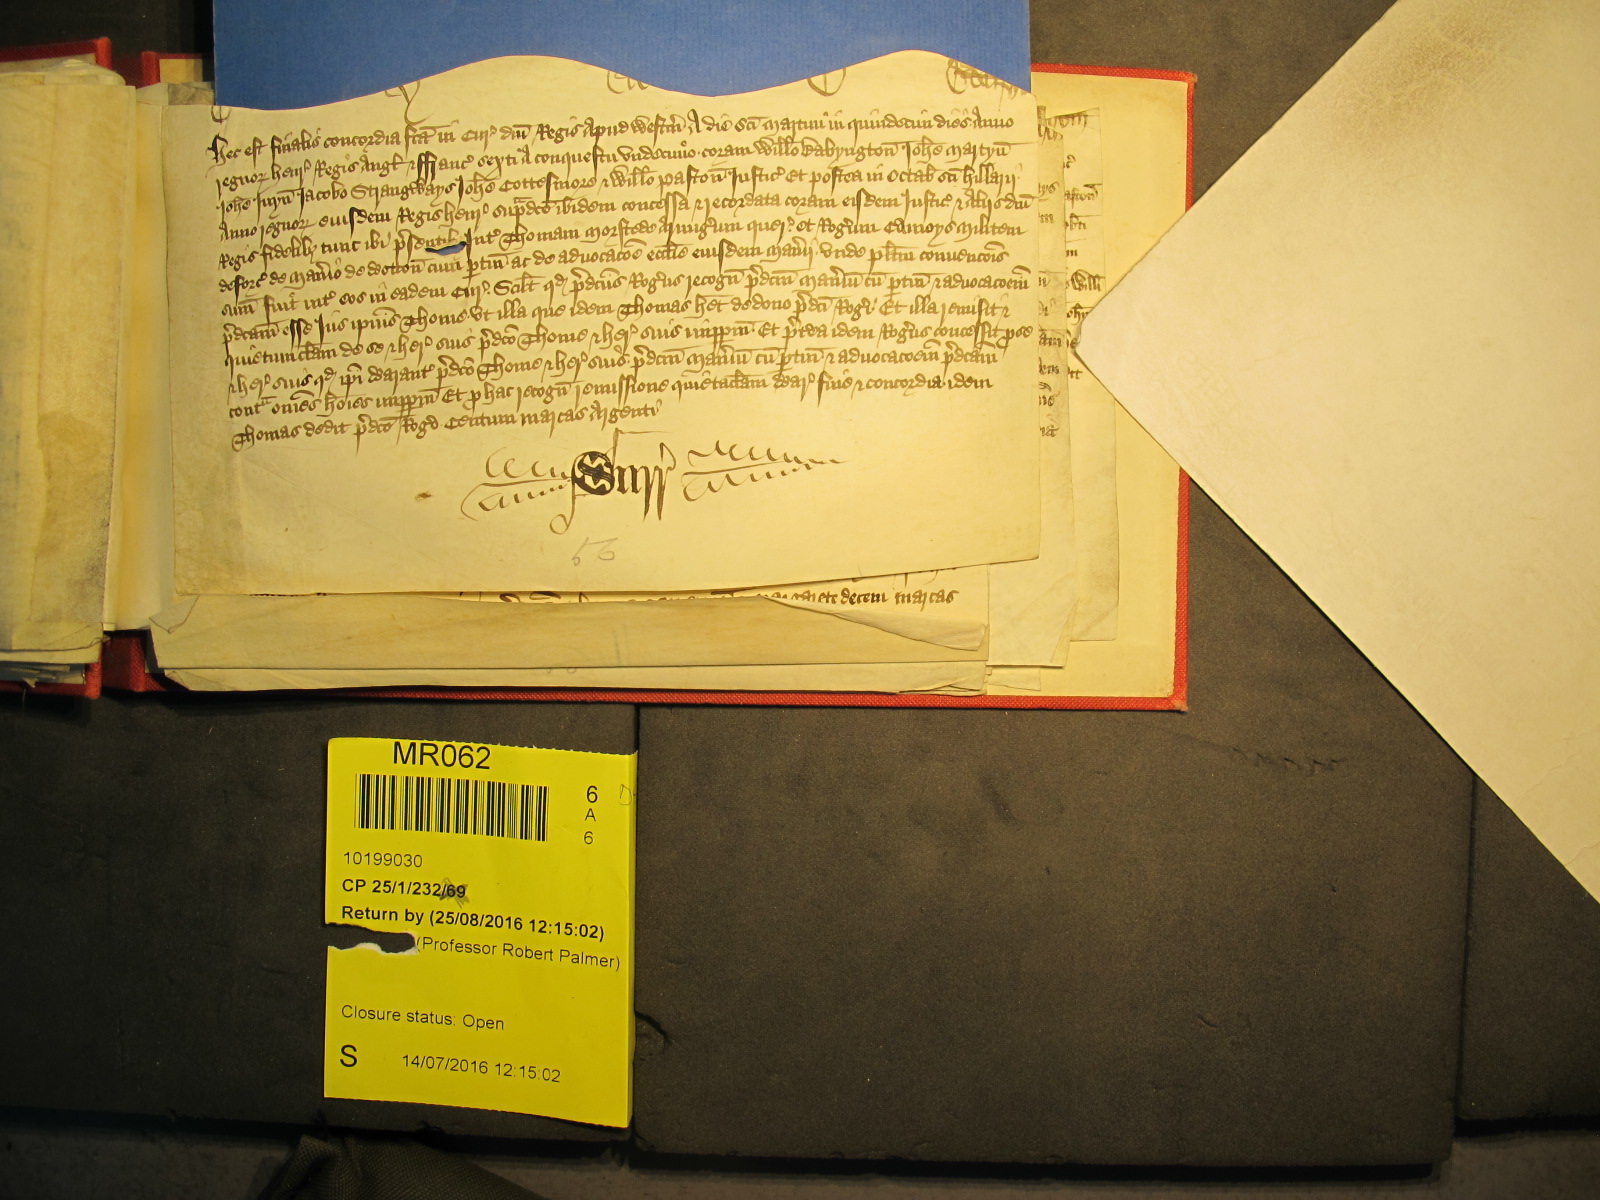 Hec est finalis concordia fca in Cur dni Regis Apud Westm A die Sci Martini in quindecim dies Anno
regnor Henr Regis Angl & Ffranc sexti A conquestu undecimo coram Willo Babyngton Johe Martyn
Johe Juyn Jacobo Strangways Johe Cottesmore & Willo Paston Justic Et postea in Octab sci Hillarii
Anno regnor eiusdem Regis Henr supradco ibidem concessa & recordata coram eisdem Justic & Aliis dni
Regis fidelib tunc ibi psentib Int Thomam Morstede Armigum quer et Rogum militem
deforc de Manio de dotton cum ptin ac de advocacoe ecclie eiusdem Manii Unde plitm convencois
sum fuit int eos in eadem Cur Scilt qd pdcus Rogus recogn pdcm Manium cu ptin & advocacoem
pdcam esse Jus ipius Thome ut illa que idem Thomas het de dono pdci Rogi Et illa remisit &
quietumclam de se & her suis pdco Thome & her suis imppm Et pterea idem Rogus concessit pro se
& her suis qd ipi Warant pdco Thome & her suis pdcm Manium cu ptin & advocacoem pdcam
contra omes hoies imppm Et p hac recogn remissione quietaclam War fine & concordia idem
Thomas dedit pdco Rogo Centum marcas Argenti
Surr
56
decem marcas
MR062
6
A
6
10199030
CP 25/1/232/69
Return by (25/08/2016 12:15:02)
(Professor Robert Palmer)
Closure status: Open
S 14/07/2016 12:15:02